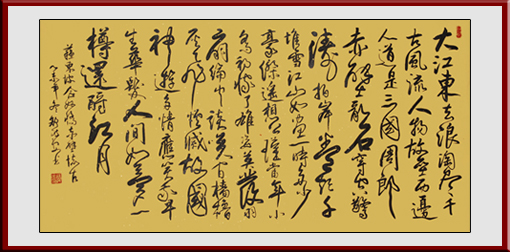 大江東去浪淘盡千
古風流人物故壘西邊
人道是三國周郎
赤壁亂石穿空驚
濤拍岸卷起千
堆雪江山如畫一時多少
豪傑遙想公瑾當年小
喬初嫁了雄姿英發羽
扇綸巾談笑間檣櫓
灰飛煙滅故國
神游多情應笑我早
生華髮人間如夢一
樽還酹江月
蘇東坡念奴嬌赤壁懷古